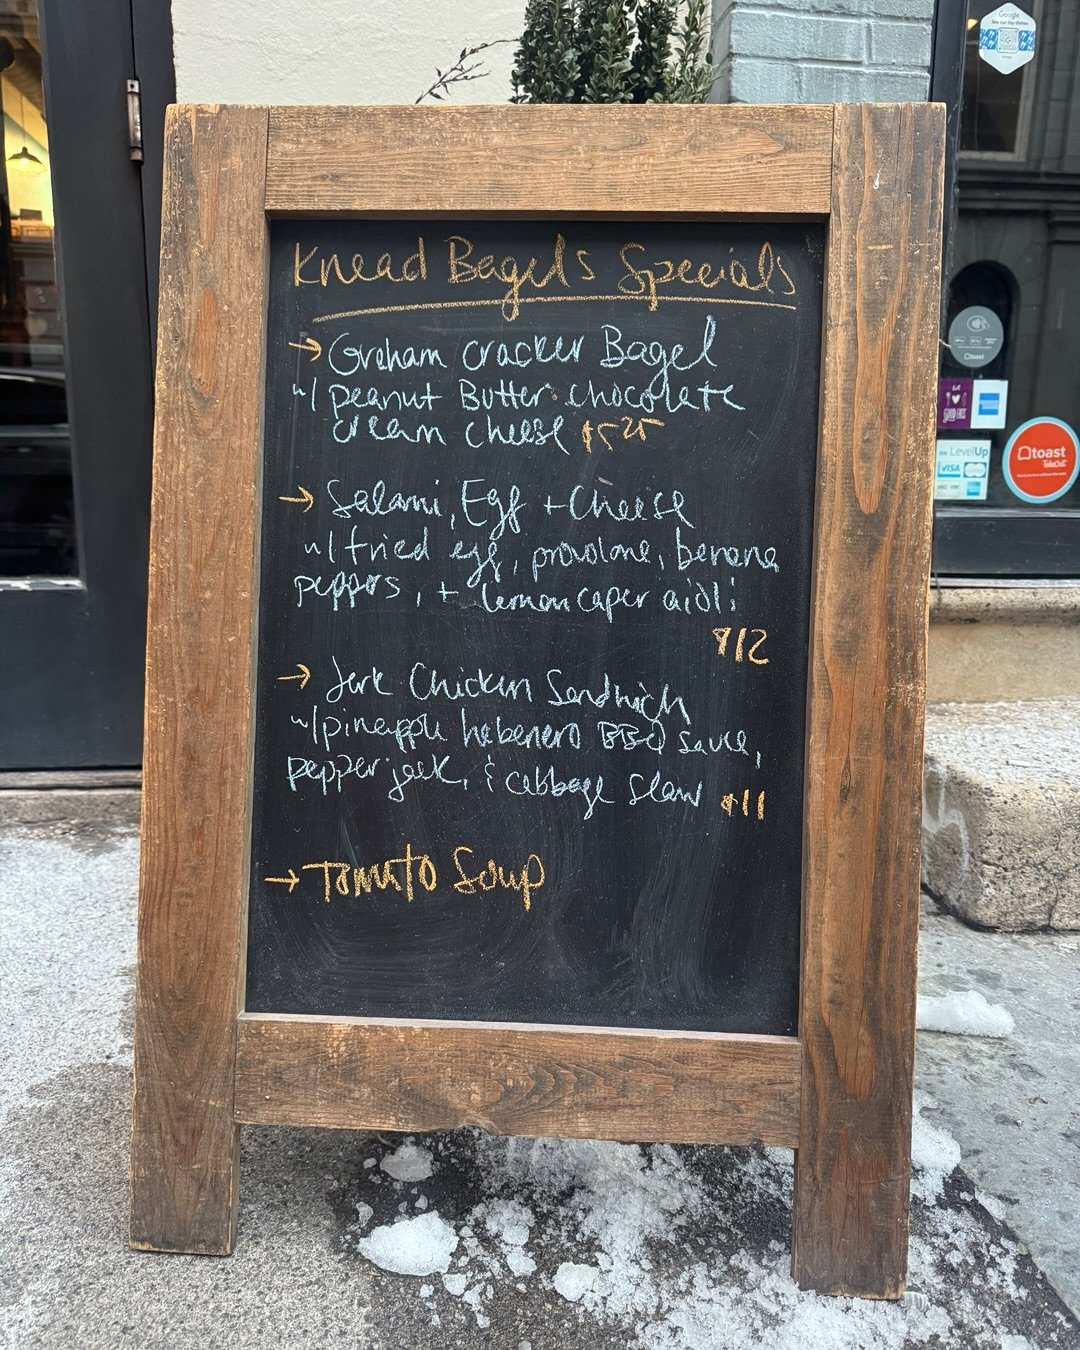 Knead Bagels Specials
→ Graham cracker Bagel
w/ peanut Butter chocolate
cream cheese $5.25
→ Salami, Egg + Cheese
w/ fried egg, provolone, banana
peppers, + lemon caper aioli
$12
→ Jerk Chicken Sandwich
w/ pineapple habenero BBQ sauce,
pepper jack, & cabbage slaw $11
→ Tomato Soup
Google
See our top dishes
toast
GOOD EATS
LevelUp
VISA
toast
TakeOut